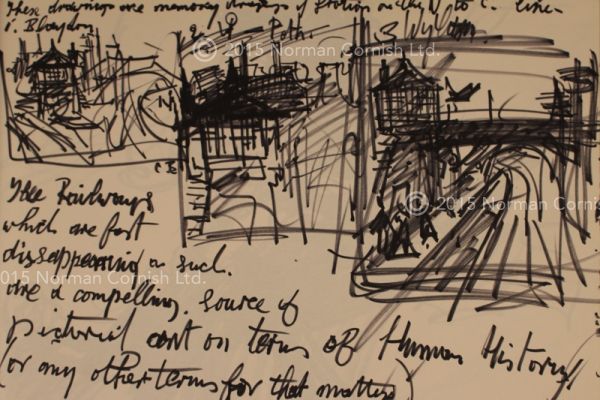 These drawings are memory drawings of Station on the N to C. line-
1. Blaydon
2
3 Wylam.
© 2015 Norman Cornish Ltd.
N
© 2015 Norman Cornish
The Railways
which are fast
dissappearing as such.
2015 Norman Cornish Ltd.
are a compelling. source of
pictorial art on terms of Human History!
(or any other terms for that matter)